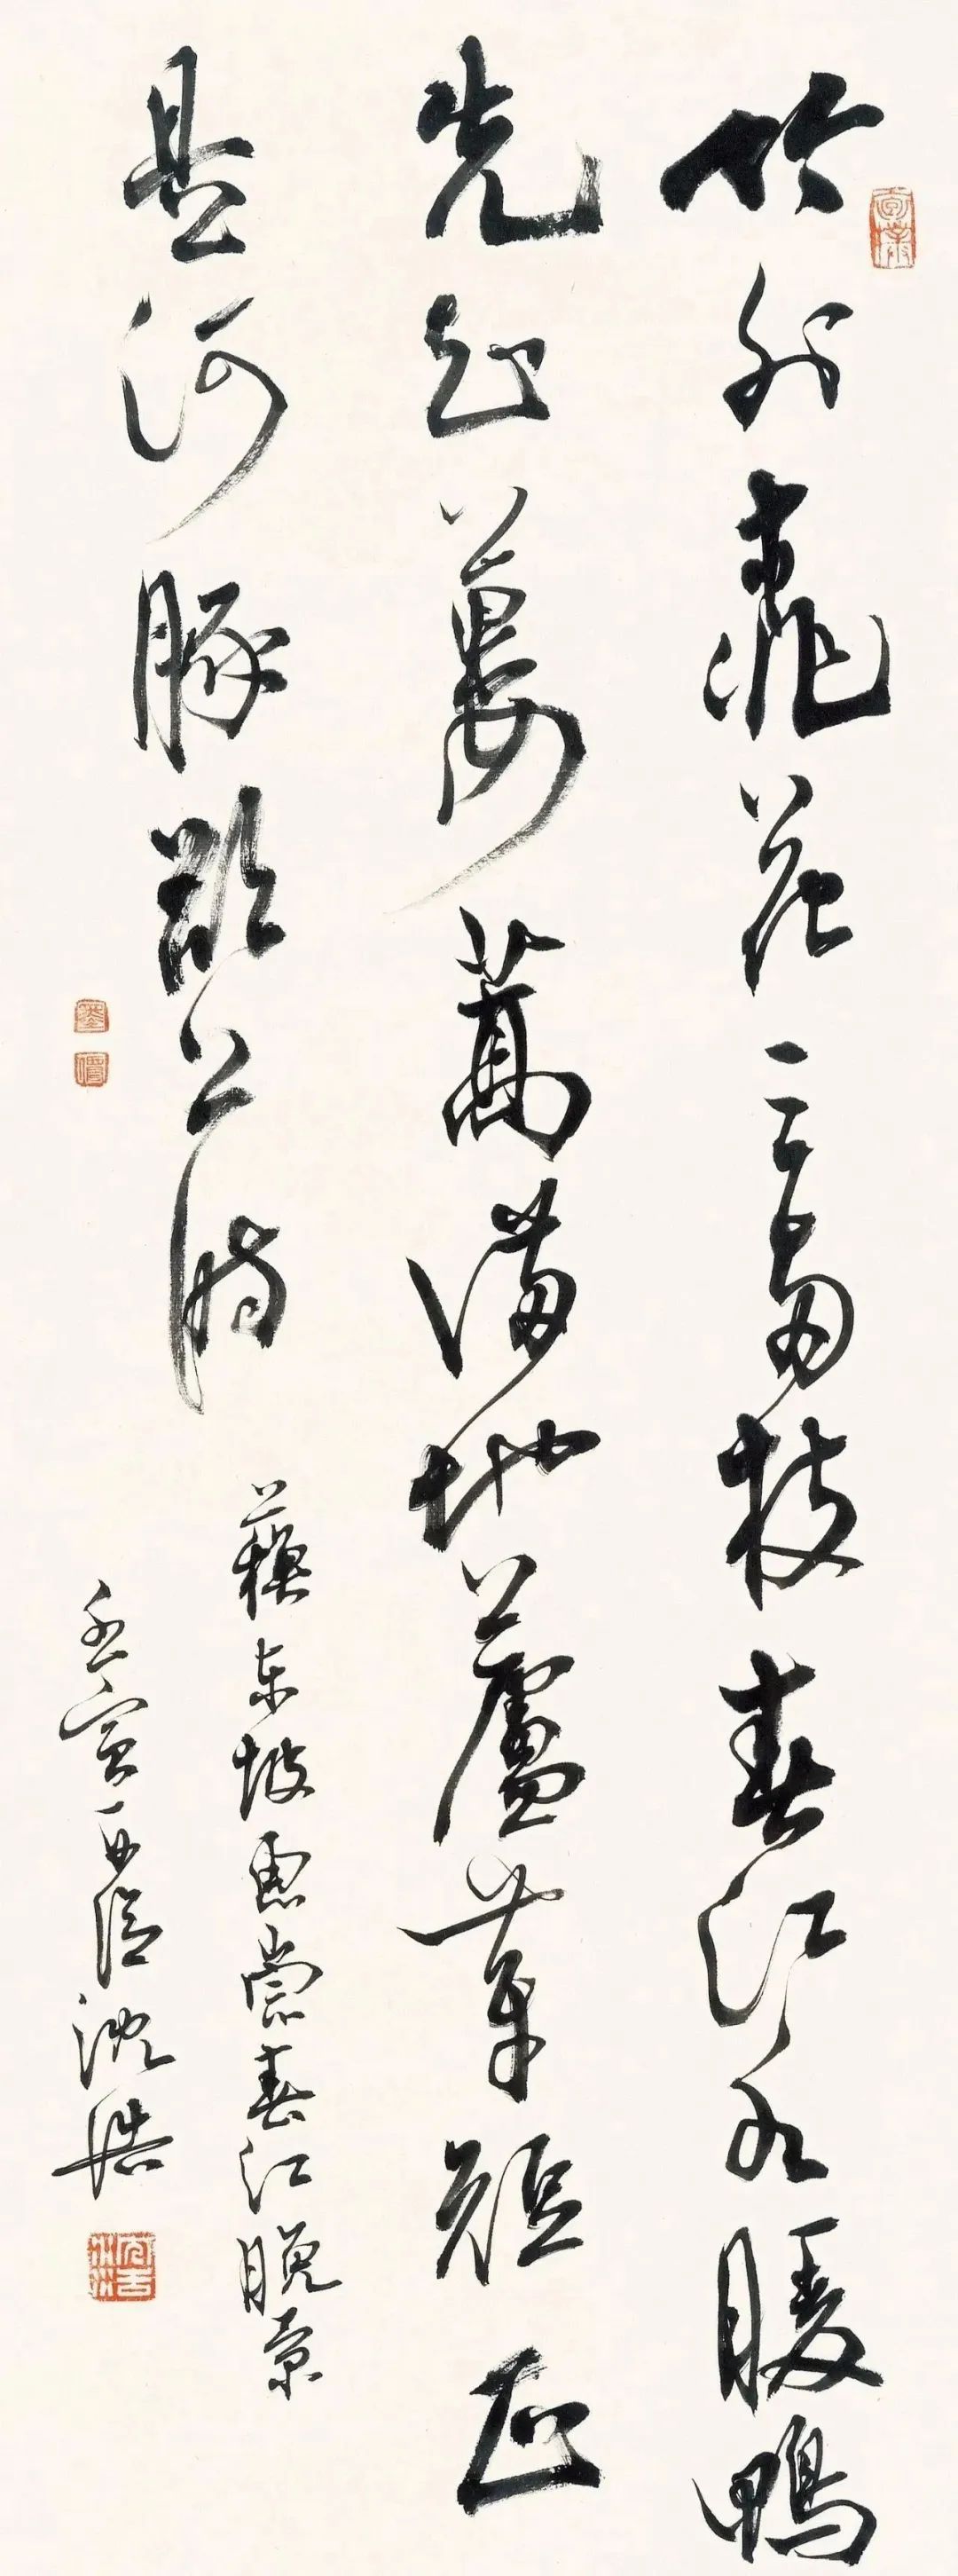 竹外桃花三兩枝春江水暖鴨
先知蔞蒿滿地蘆芽短正
是河豚欲上時
蘇東坡惠崇春江晚景
壬寅沈浩